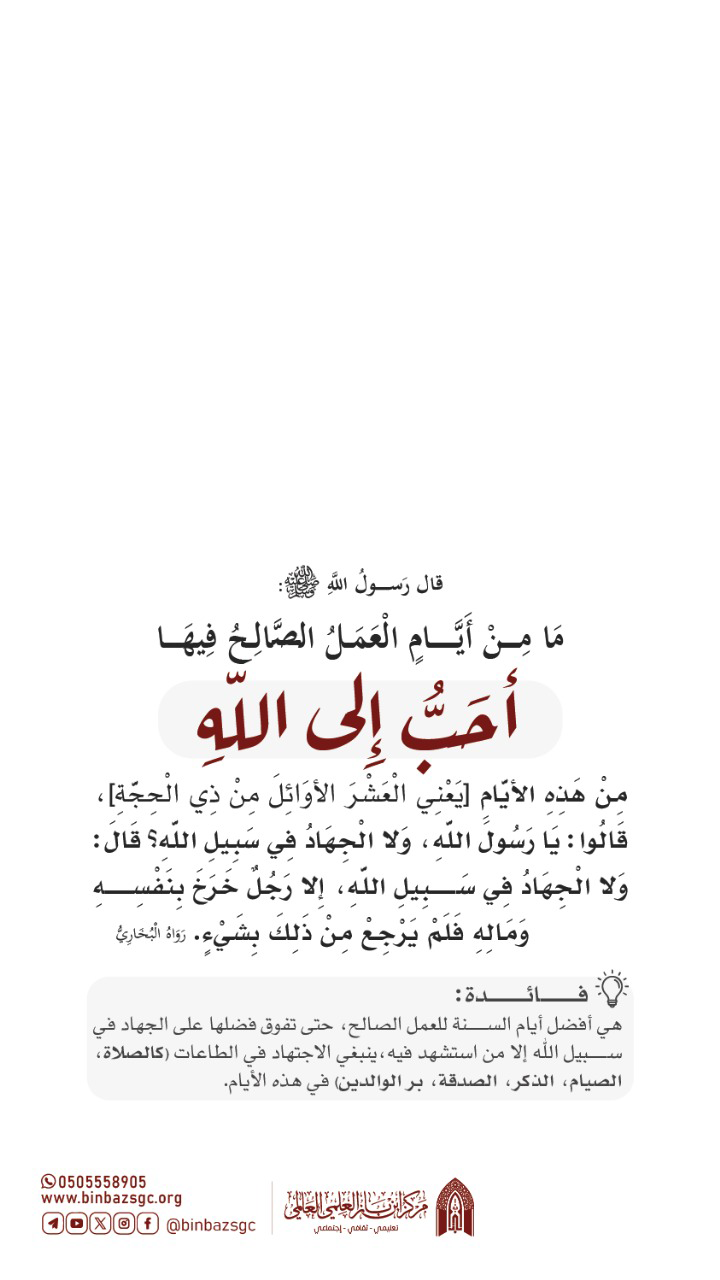 قال رَســولُ اللَّهِ ﷺ:
مَا مِــنْ أَيَّـــامٍ الْعَمَـلُ الصَّالِحُ فِيهَــا
أَحَبُّ إِلى اللّهِ
مِنْ هَذِهِ الأيّامِ [يَعْنِي الْعَشْرَ الأوَائِلَ مِنْ ذِي الْحِجّةِ]،
قَالُوا: يَا رَسُولَ اللّهِ، وَلا الْجِهَادُ فِي سَبِيلِ اللّهِ؟ قَالَ:
وَلا الْجِهَادُ فِي سَـــبِيلِ اللّهِ، إلا رَجُلٌ خَرَجَ بِنَفْسِـــهِ
وَمَالِهِ فَلَمْ يَرْجِعْ مِنْ ذَلِكَ بِشَيْءٍ. رَوَاهُ الْبُخَارِيُّ
فــــائــــدة:
هي أفضل أيام الســـنة للعمل الصالح، حتى تفوق فضلها على الجهاد في
ســـبيل الله إلا من استشهد فيه،ينبغي الاجتهاد في الطاعات (كالصلاة،
الصيام، الذكر، الصدقة، بر الوالدين) في هذه الأيام.
0505558905
www.binbazsgc.org
@binbazsgc
مركز ابن باز العلمي العالمي
تعليمي - ثقافي - إجتماعي